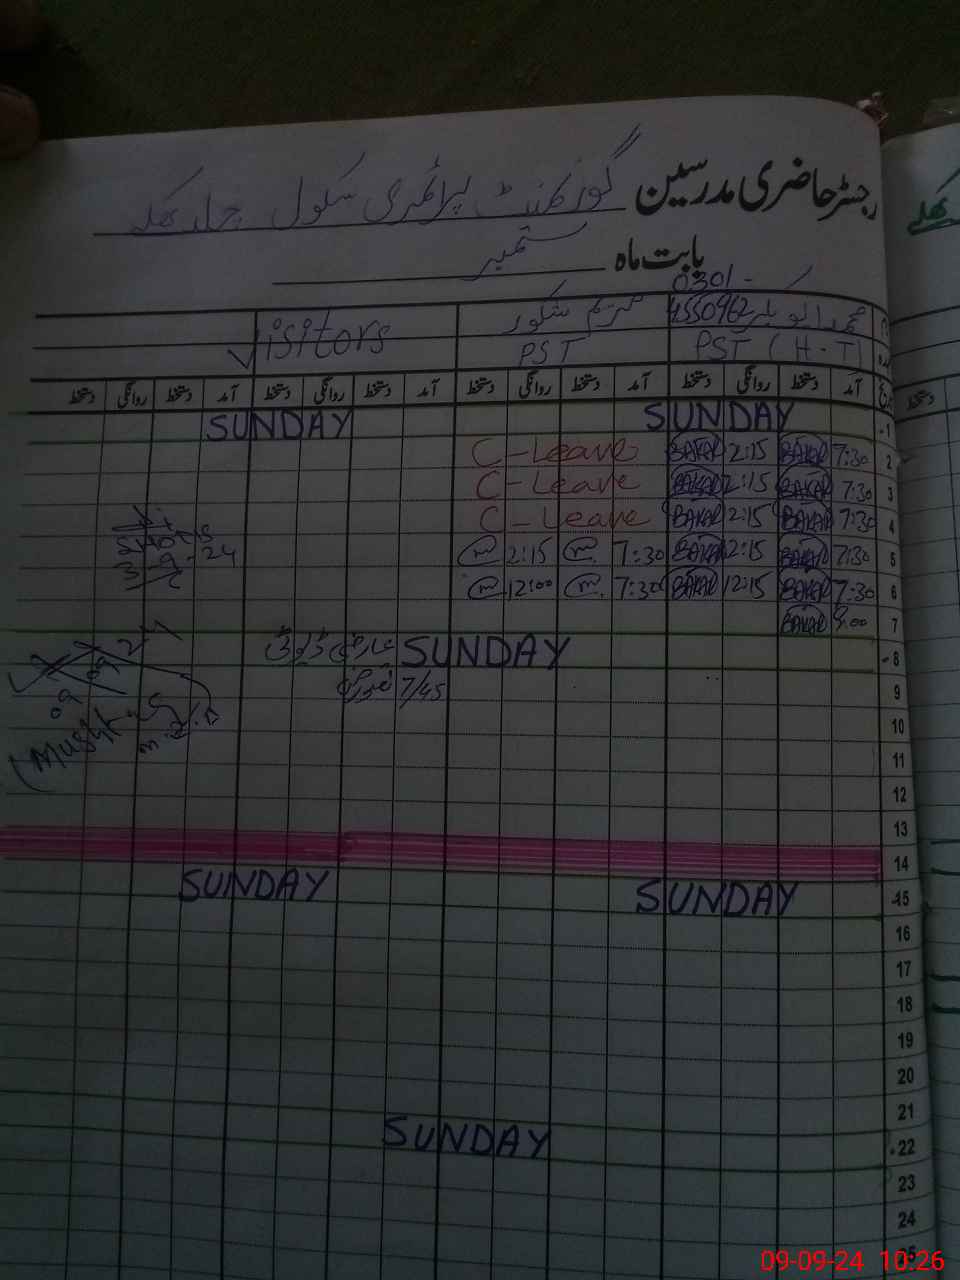 رجسٹر حاضری مدرسین گورنمنٹ پرائمری سکول
بابت ماہ ستمبر
0301-
محمد ابوبکر 4550962 مریم شکور Visitors
PST (H-T) PST
آمد دستخط روانگی دستخط آمد دستخط روانگی دستخط آمد دستخط روانگی دستخط آمد دستخط روانگی دستخط
1 SUNDAY SUNDAY
2 7:30 BAKAR 2:15 BAKAR C-Leave
3 7:30 BAKAR 2:15 BAKAR C-Leave
4 7:30 BAKAR 2:15 BAKAR C-Leave
5 7:30 BAKAR 2:15 BAKAR 7:30 m 2:15 m
6 7:30 BAKAR 12:15 BAKAR 7:30 m 12:00 m
7 8:00 BAKAR
8 SUNDAY عارضی ڈیوٹی
9 7/45
10
11
12
13
14
15 SUNDAY SUNDAY
16
17
18
19
20
21
22 SUNDAY
23
24
25
3-9-24
09 09 24
09-09-24 10:26